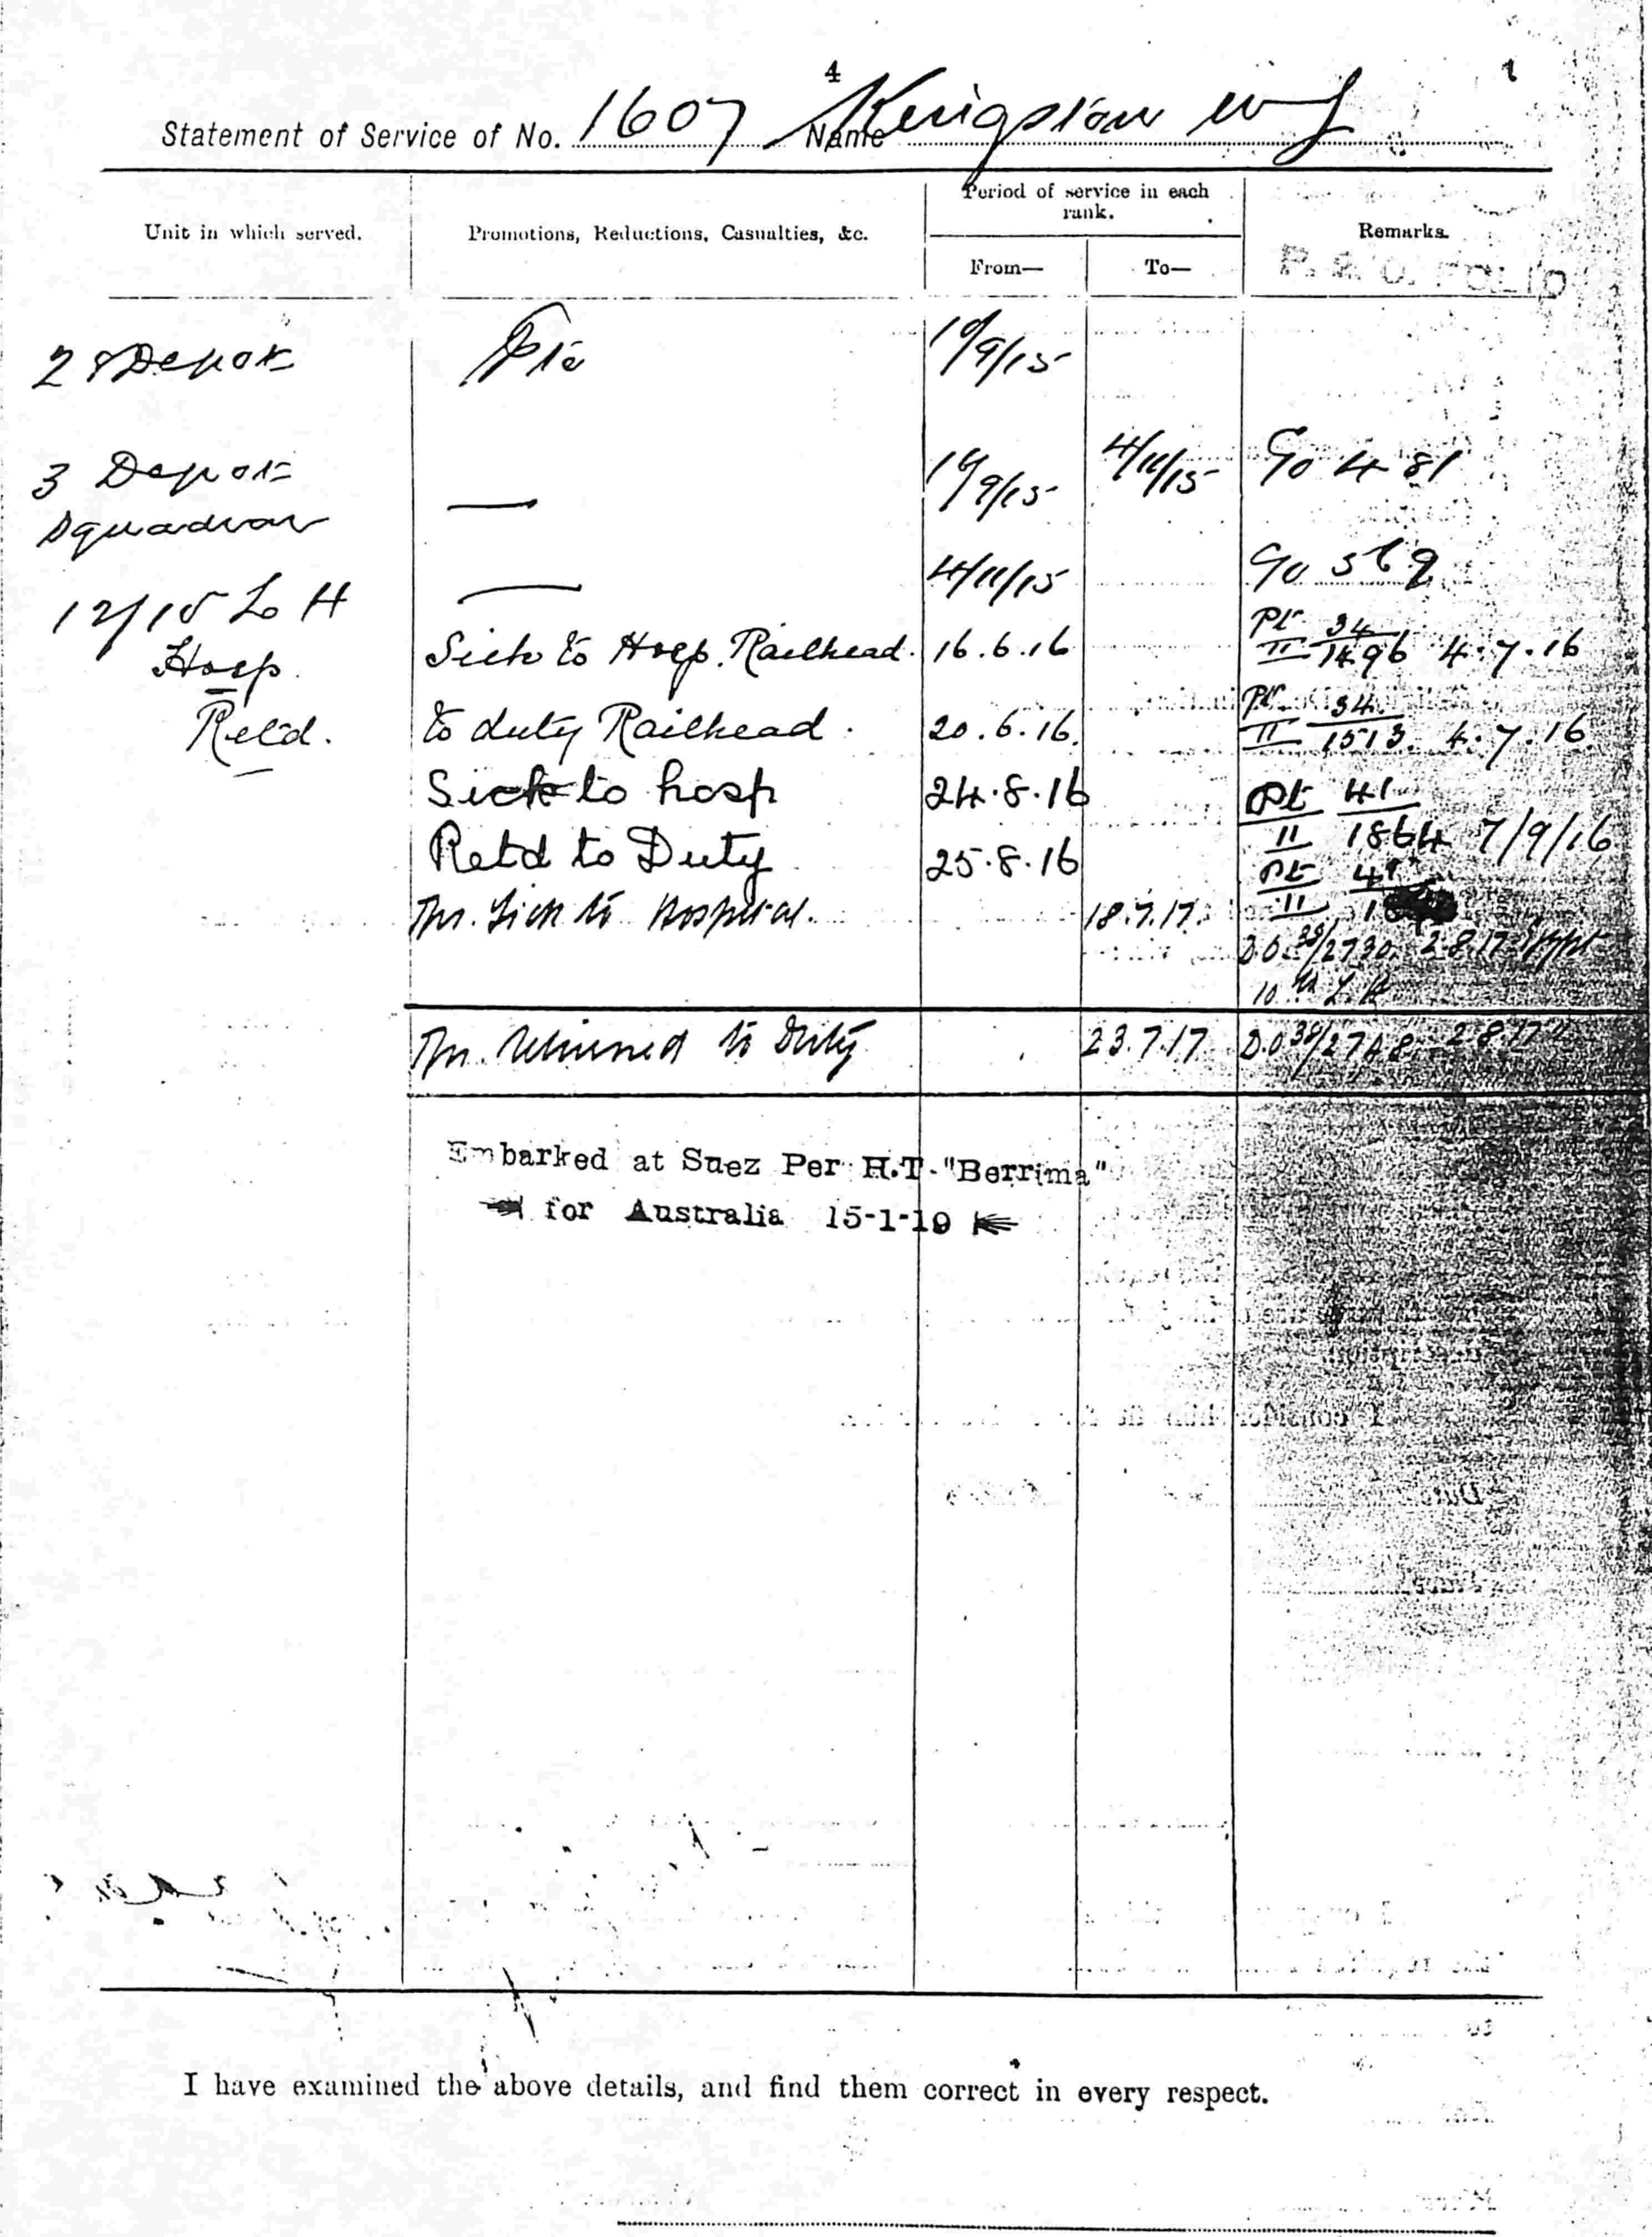 4
Statement of Service of No. 1607 Name Kingston W J
Unit in which served.
Promotions, Reductions, Casualties, &c.
Period of service in each rank.
From—
To—
Remarks.
P. & O. FOLIO
28 Depot Pte /9/15
3 Depot /9/15 4/11/15 481
Squadron
12/15 L H 4/11/15
Hosp. Sick to Hosp. Railhead. 16.6.16 Pt II 34/1496 4.7.16
Retd. to duty Railhead. 20.6.16. Pt II 34/1513 4.7.16
Sick to hosp 24.8.16 Pt II 41/1864 7/9/16
Retd to Duty 25.8.16 Pt II
Tpr. Sick to Hospital. 18.7.17. D.O. 38/2730. 2.8.17 Egypt
L.H
Tpr. returned to Duty 23.7.17 D.O 38/2748. 2.8.17
Embarked at Suez Per H.T. "Berrima"
for Australia 15-1-19
I have examined the above details, and find them correct in every respect.